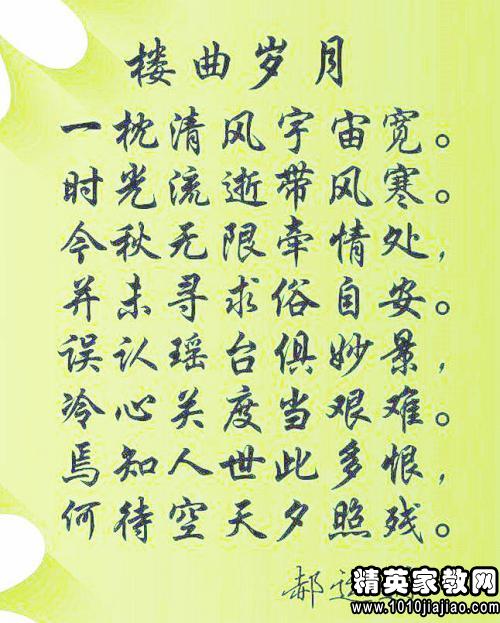 楼曲岁月
一枕清风宇宙宽。
时光流逝带风寒。
今秋无限牵情处，
并未寻求俗自安。
误认瑶台俱妙景，
冷心关度当艰难。
焉知人世此多恨，
何待空天夕照残。
郝运
精英家教网
www.1010jiajiao.com